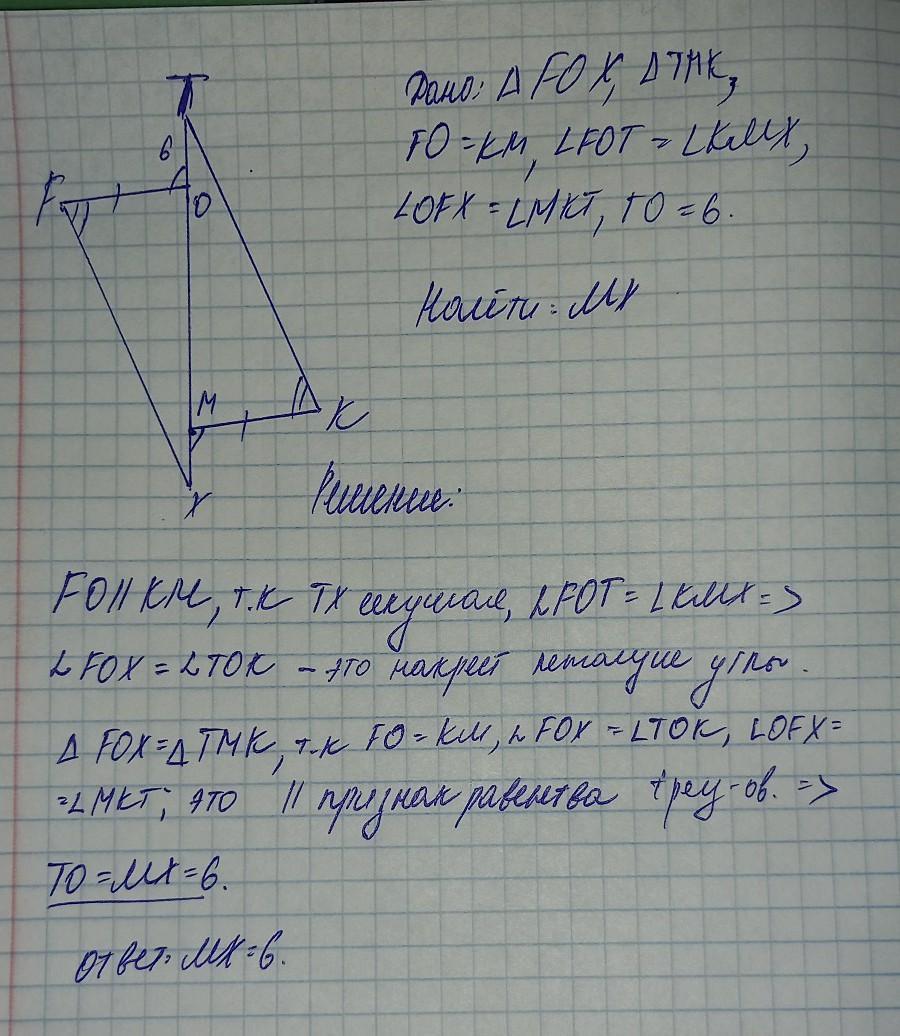 T
6
F
O
M
K
X
Дано: Δ FOX, ΔTMK,
FO = KM, ∠FOT = ∠KMX,
∠OFX = ∠MKT, TO = 6.
Найти: MX
Решение:
FO || KM, т.к TX секущая, ∠FOT = ∠KMX =>
∠FOX = ∠TOK - это накрест лежащие углы.
Δ FOX = Δ TMK, т.к FO = KM, ∠FOX = ∠TOK, ∠OFX =
= ∠MKT; это II признак равенства треу-ов. =>
TO = MX = 6.
Ответ: MX = 6.